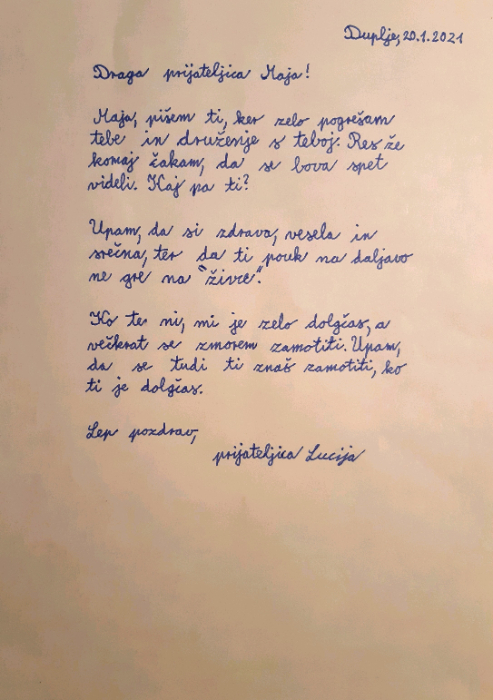 Duplje, 20.1.2021
Draga prijateljica Maja!
Maja, pišem ti, ker zelo pogrešam
tebe in druženje s teboj. Res že
komaj čakam, da se bova spet
videli. Kaj pa ti?
Upam, da si zdrava, vesela in
srečna, ter da ti pouk na daljavo
ne gre na "živce".
Ko te ni, mi je zelo dolgčas, a
večkrat se zmorem zamotiti. Upam,
da se tudi ti znaš zamotiti, ko
ti je dolgčas.
Lep pozdrav,
prijateljica Lucija